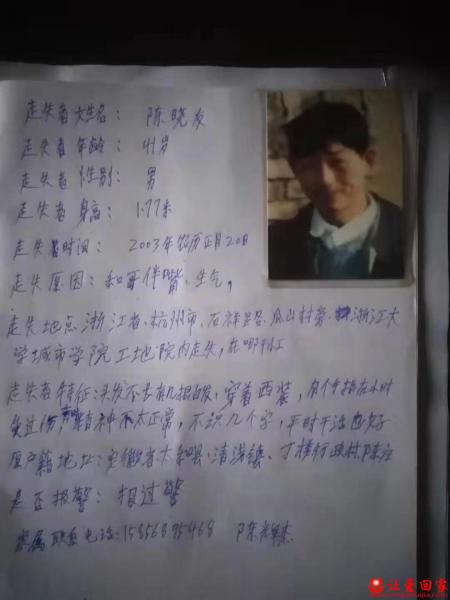 走失者大姓名: 陈晓友
走失者年龄: 41岁
走失者性别: 男
走失者身高: 1.77米
走失者时间: 2003年农历正月20日
走失原因: 和哥伴嘴、生气,
走失地点 浙江省、杭州市、石祥路、瓜山村旁 浙江大
学城市学院工地院内走失,在哪干工
走失者特征:头发 有几根白发,穿着西装,有个手指在小时
受过伤 精神不太正常,不识几个字,平时干活也好
原户籍地址:安徽省太和县、清浅镇、丁楼行政村陈庄
是否报警: 报过警
家属联系电话:15856895468 陈
让爱回家